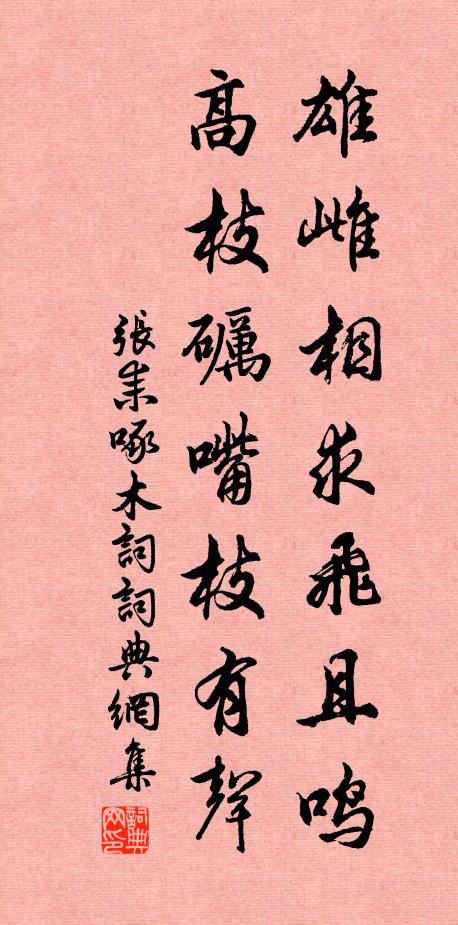 雄雌相求飛且鸣
高枝礪嘴枝有聲
張耒啄木詞詞典網集
詞典网印